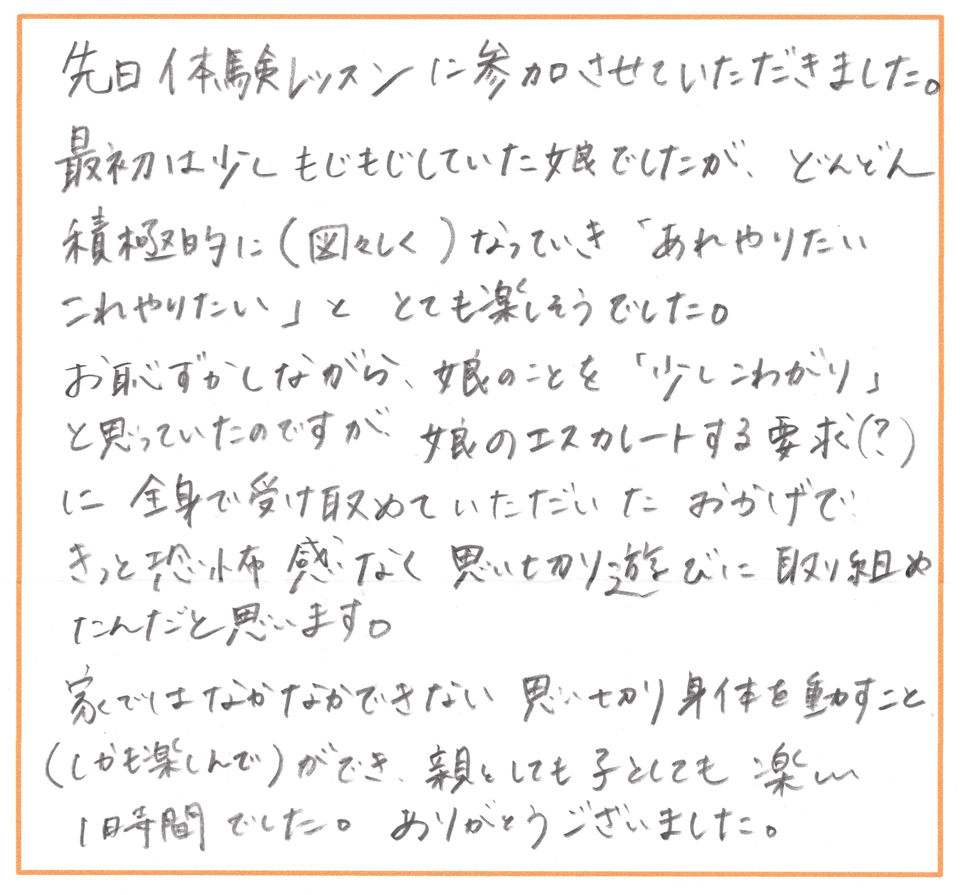 先日体験レッスンに参加させていただきました。
最初は少しもじもじしていた娘でしたが、どんどん
積極的に(図々しく)なっていき「あれやりたい
これやりたい」と とても楽しそうでした。
お恥ずかしながら、娘のことを「少しこわがり」
と思っていたのですが、娘のエスカレートする要求(?)
に 全身で受け取めていただいた おかげで
きっと恐怖感なく 思い切り遊びに取り組め
たんだと思います。
家ではなかなかできない 思い切り身体を動かすこと
(しかも楽しんで)ができ、親としても子としても 楽しい
1時間でした。ありがとうございました。